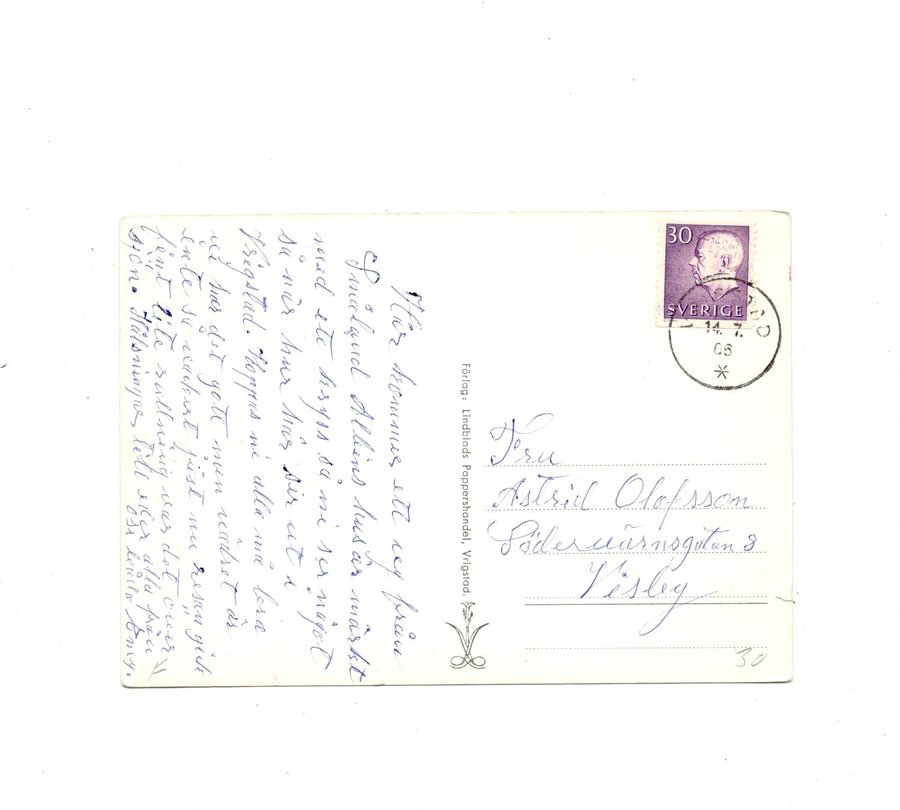 Här kommer ett vy från
Småland Albins hus är märkt
med ett kryss så ni ser något
så när hur här ser ut i
Vrigstad. Hoppas ni alla må bra
vi har det gott men vädret är
inte så vackert just nu resan gick
fint lite rullning var det över
sjön. Hälsningar till eder alla från
oss båda
Förlag: Lindblads Pappershandel, Vrigstad.
30
SVERIGE
14. 7.
66
Fru
Astrid Olofsson
Södervärnsgatan 8
Visby
30